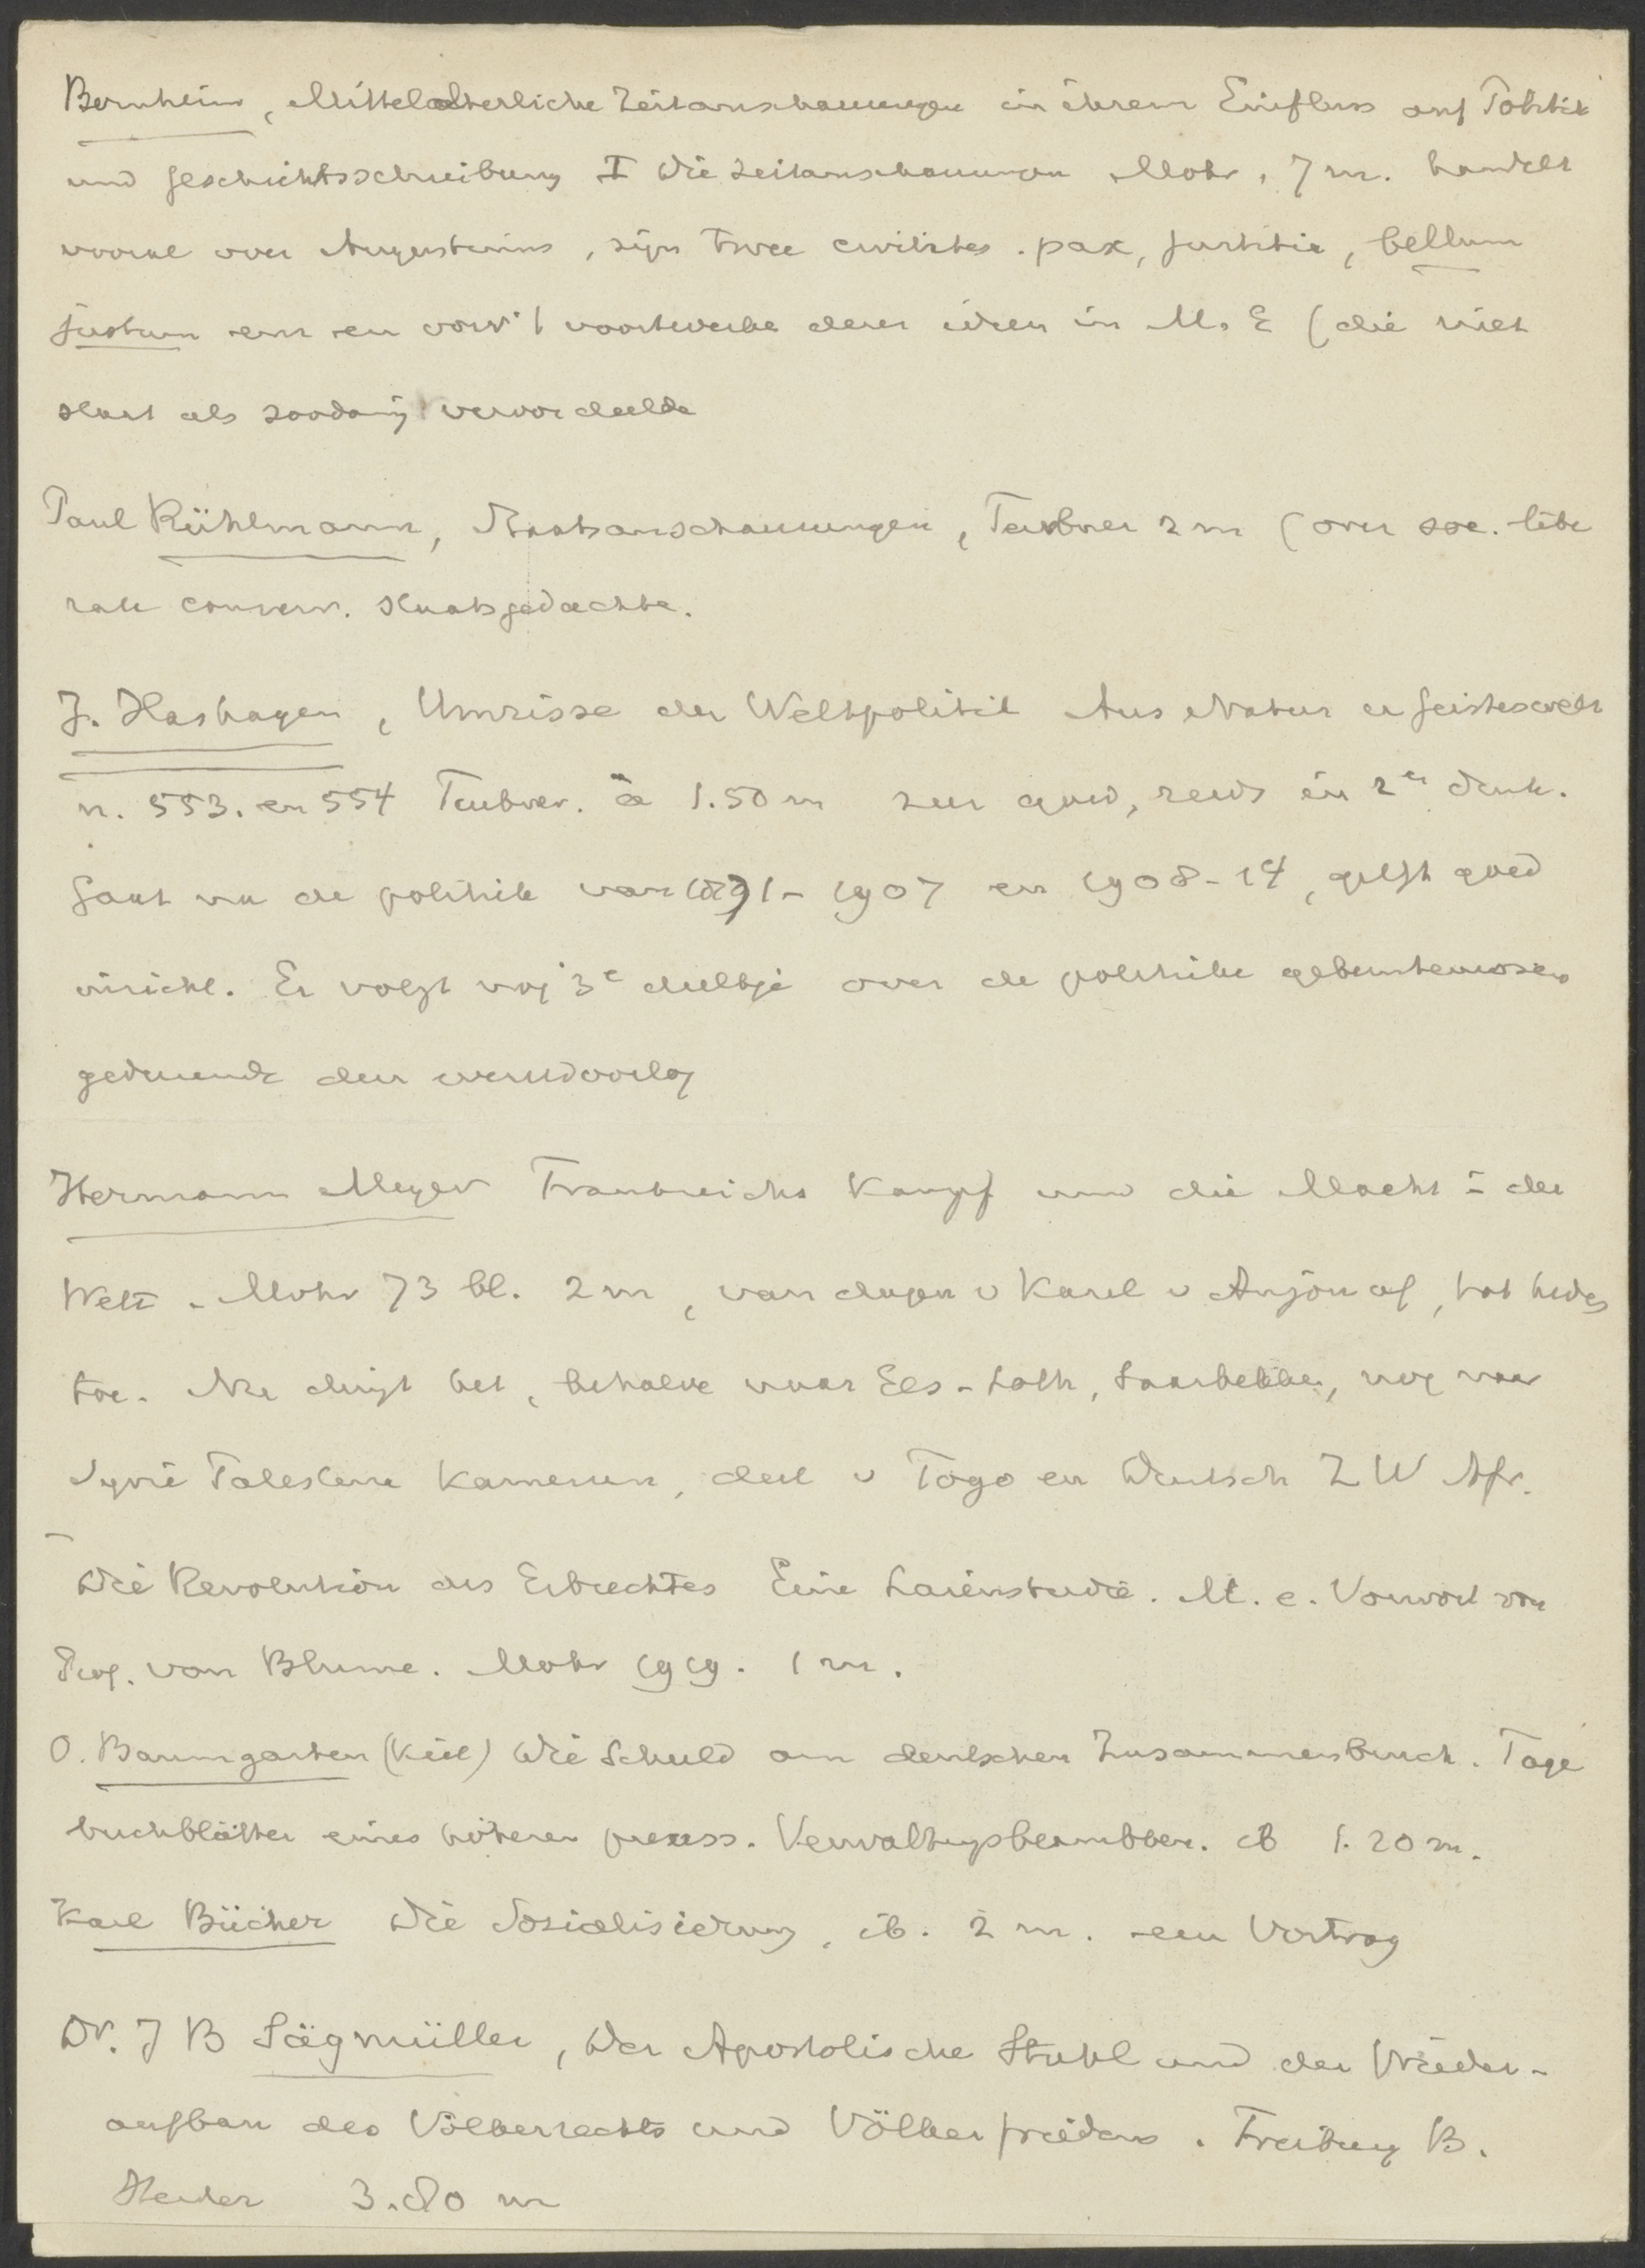 Bernheim, Mittelalterliche Zeitanschauungen in ihrem Einfluss auf Politik
und Geschichtsschreibung I Die Zeitanschauungen Mohr, 7 m. handelt
vooral over Augustinus, zijn twee civitates. pax, justitia, bellum
justum en en voortwerke dezer ideen in M. E (die niet
staat als zoodanig veroordeelde
Paul Rühlmann, Staatsanschauungen, Teubner 2 m (over soc. libe
rale conserv. staatsgedachte.
J. Hashagen, Umrisse der Weltpolitik Aus Natur u Geisteswelt
n. 553. en 554 Teubner. à 1.50 m zeer goed, reeds in 2en druk.
Gaat na de politiek van 1871 - 1907 en 1908-14, geeft goed
inzicht. Er volgt nog 3e deeltje over de politieke gebeurtenissen
gedurende den wereldoorlog
Hermann Meyer Frankreichs Kampf um die Macht i der
Welt. Mohr 73 bl. 2 m, van dagen v Karel v Anjou af, tot heden
toe. Nu dingt het, behalve naar Els-Loth, Saarbekken, nog naar
Syrië Palestina Kamerun, deel v Togo en Deutsch Z W Afr.
Die Revolution des Erbrechtes Eine Laienstudie. M. e. Vorwort von
Prof. von Blume. Mohr 1919. 1 m.
O. Baumgarten (Kiel) Die Schuld am deutschen Zusammenbruch. Tage
buchblätter eines höheren preuss. Verwaltungsbeambten. ib 1.20 m.
Karl Bücher Die Sozialisierung, ib. 2 m. een Vortrag
Dr. J B Sägmüller, Der Apostolische Stuhl und der Wieder-
aufbau des Völkerrechts und Völkerfriedens. Freiburg B.
Herder 3.80 m